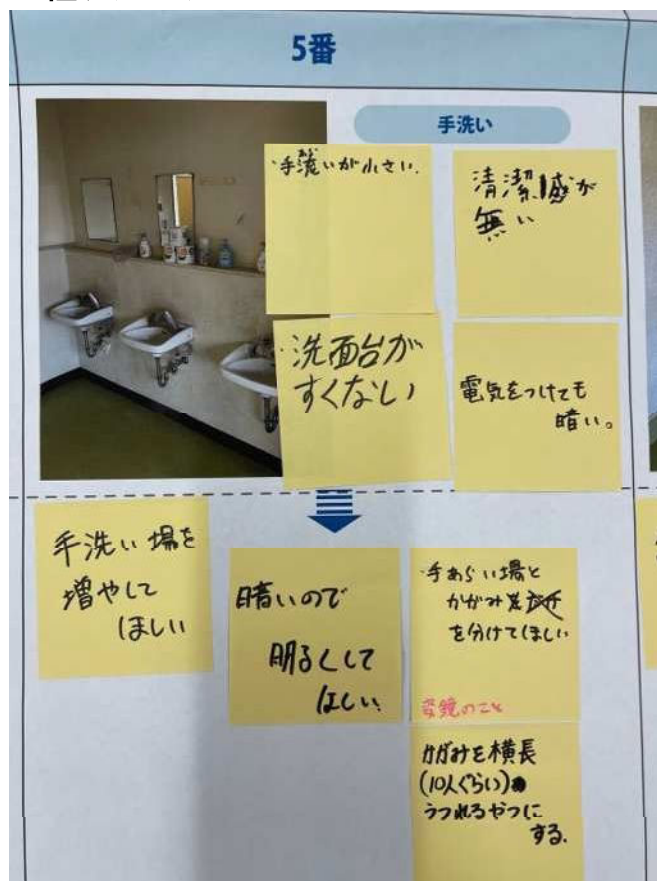 5番
手洗い
・手洗いが小さい.
清潔感が
無い
・洗面台が
すくない
電気をつけても
暗い。
手洗い場を
増やして
ほしい
暗いので
明るくして
ほしい.
・手あらい場と
かがみを
を分けてほしい
姿鏡のこと
かがみを横長
(10人ぐらい)
うつれるやつに
する.